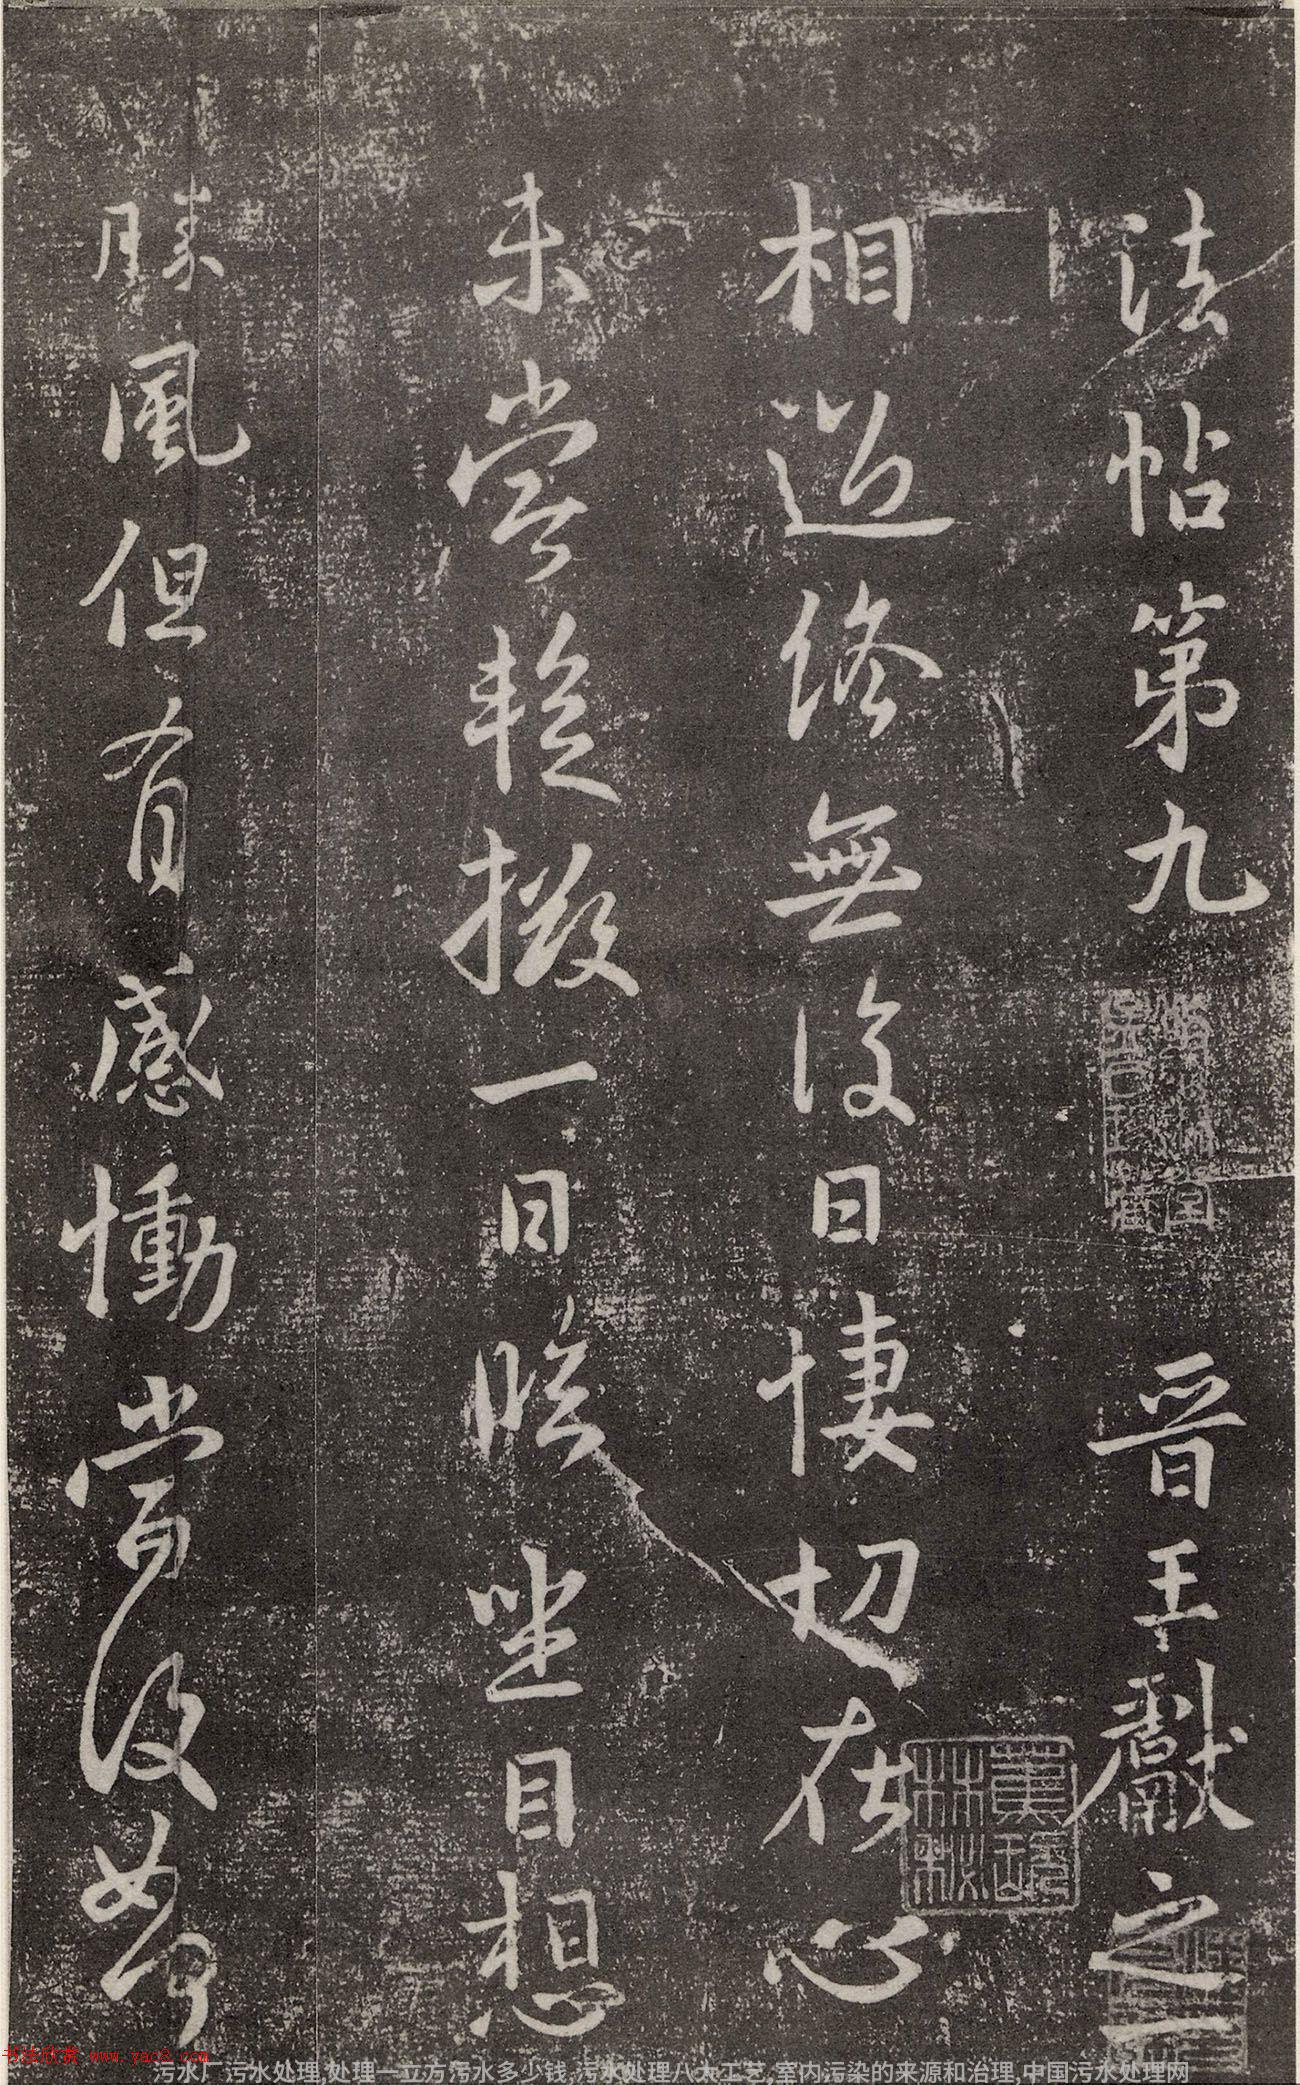 法帖第九 晉王獻之一
相過終無復日悽切在心
未嘗暫掇一日臨坐目想
勝風但有感慟當復如何
書法欣賞 www.yac8.com
污水厂污水处理,处理一立方污水多少钱,污水处理八大工艺,室内污染的来源和治理,中国污水处理网